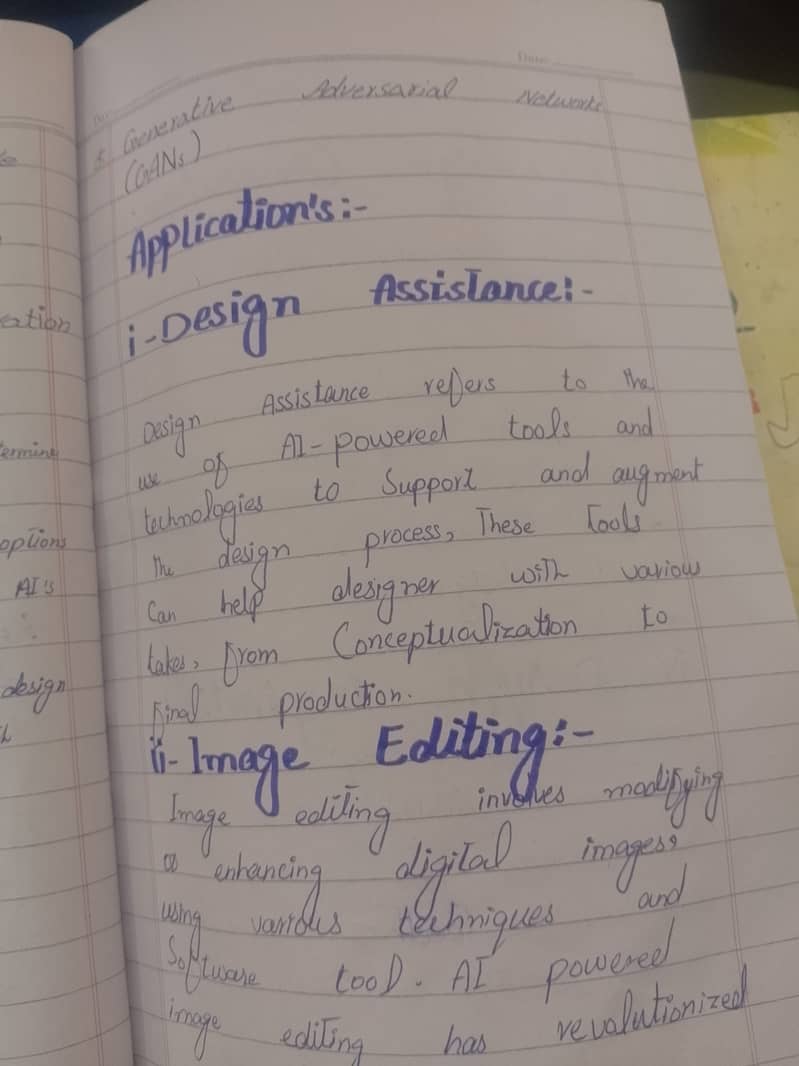 Generative Adversarial Networks
(GANs)
Application's:-
i-Design Assistance:-
Design Assistance refers to the
use of AI-powered tools and
technologies to Support and augment
the design process, These Tools
Can help designer with various
takes, from Conceptualization to
final production.
ii- Image Editing:-
Image editing involves modifying
or enhancing digital images,
using various techniques and
Software tool. AI powered
image editing has revolutionized
ation
ermine
options
AI's
design